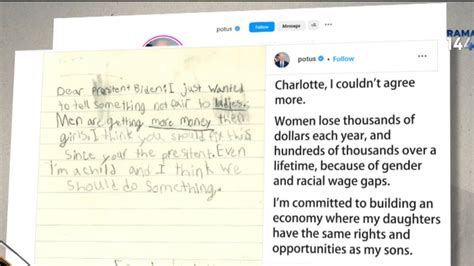 potus
Follow
Message
RAMA
14/
Dear President Biden: I Just wanted
to tell something not fair to ladies.
Men are getting more money then
girls. I think you should fix this
since your the president. Even
I'm a child and I think we
should do something.
potus • Follow
Charlotte, I couldn't agree
more.
Women lose thousands of
dollars each year, and
hundreds of thousands over a
lifetime, because of gender
and racial wage gaps.
I'm committed to building an
economy where my daughters
have the same rights and
opportunities as my sons.